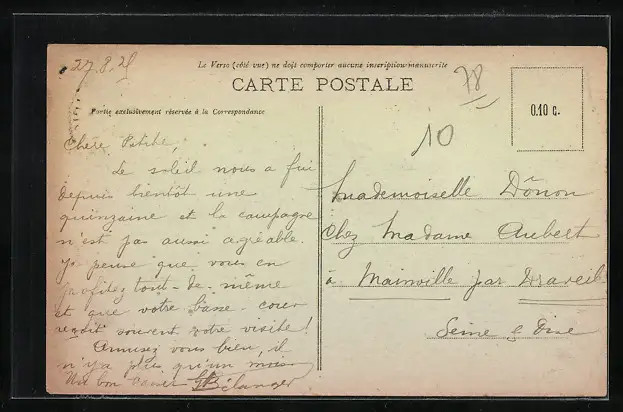 27.8.25
Le Verso (côté vue) ne doit comporter aucune inscription manuscrite
CARTE POSTALE
Partie exclusivement réservée à la Correspondance
78
10
0.10 c.
Chère Petite,
Le soleil nous a fui
depuis bientôt une
quinzaine et la campagne
n'est pas aussi agréable.
Je pense que vous en
profitez tout-de-même
et que votre basse-cour
reçoit souvent votre visite!
Amusez vous bien, il
n'y a plus qu'un mois
Un bon baiser Bélanger
Mademoiselle Dônon
Chez Madame Aubert
à Mainville par Draveil
Seine & Oise